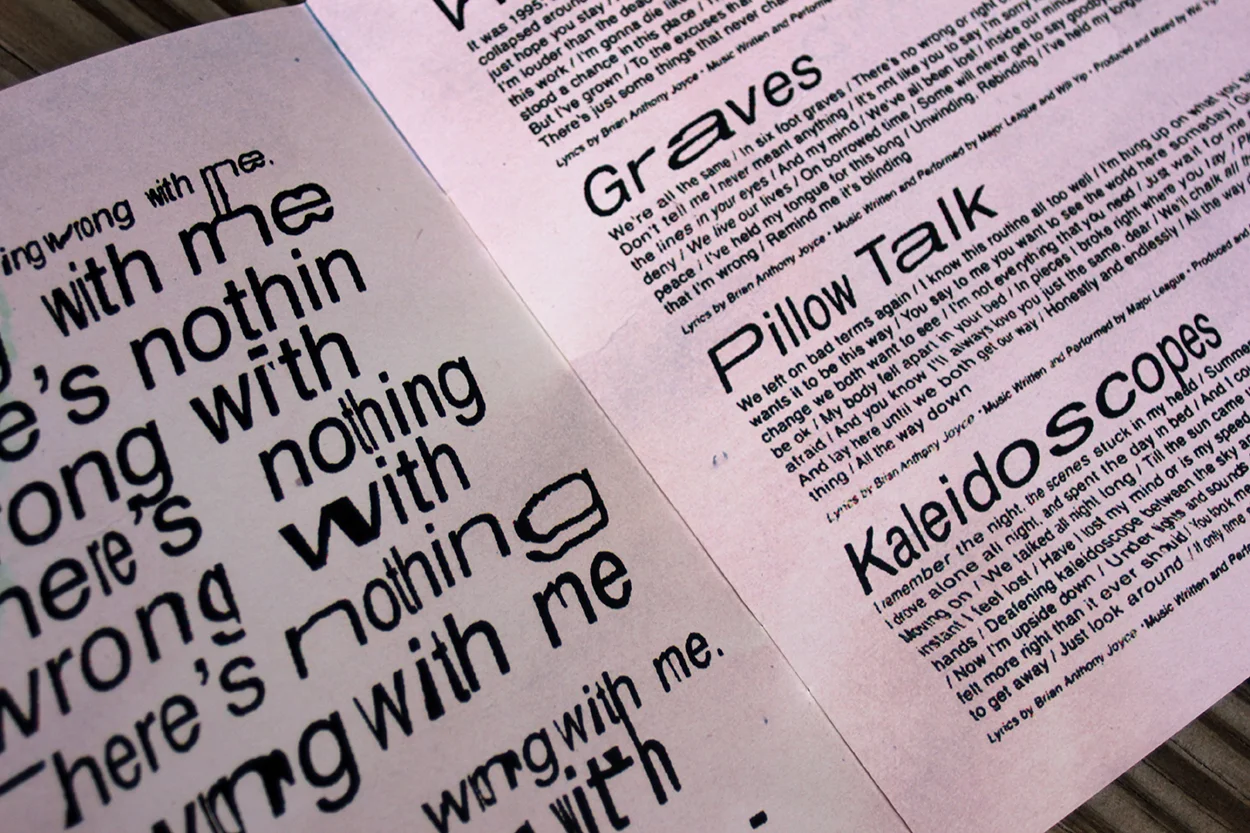 ing wrong with me.
with me
e's nothin
ong with
here's nothing
wrong with
here's nothing
wrong with me
wrong with me.
with
It was 1995.
collapsed around
just hope you stay /
I'm louder than the dead
this work / I'm gonna die like
stood a chance in this place /
But I've grown / To the excuses that
There's just some things that never cha
Lyrics by Brian Anthony Joyce • Music Written and Perform
Graves
We're all the same / In six foot graves / There's no wrong or right
Don't tell me I never meant anything / It's not like you to say I'm sorry
the lines in your eyes / And my mind / We've all been lost / Inside our mind
deny / We live our lives / On borrowed time / Some will never get to say goodby
peace / I've held my tongue for this long / Unwinding. Rebinding / I've held my tong
that I'm wrong / Remind me it's blinding
Lyrics by Brian Anthony Joyce • Music Written and Performed by Major League and Will Yip • Produced and Mixed by Will Yip
Pillow Talk
We left on bad terms again / I know this routine all too well / I'm hung up on what you
wants it to be this way / You say to me you want to see the world here someday /
change we both want to see / I'm not everything that you need / Just wait for me
be ok / My body fell apart in your bed / In pieces I broke right where you lay /
afraid / And you know I'll always love you just the same, dear / We'll chalk all
And lay here until we both get our way / Honestly and endlessly / All the way
thing / All the way down
Lyrics by Brian Anthony Joyce • Music Written and Performed by Major League • Produced and
Kaleidoscopes
I remember the night, the scenes stuck in my head / Summe
I drove alone all night, and spent the day in bed / And I co
Moving on / We talked all night long / Till the sun came
instant I feel lost / Have I lost my mind or is my speed
hands / Deafening kaleidoscope between the sky a
/ Now I'm upside down / Under lights and sounds
felt more right than it ever should / You took me
to get away / Just look around / If only time
Lyrics by Brian Anthony Joyce • Music Written and Perf